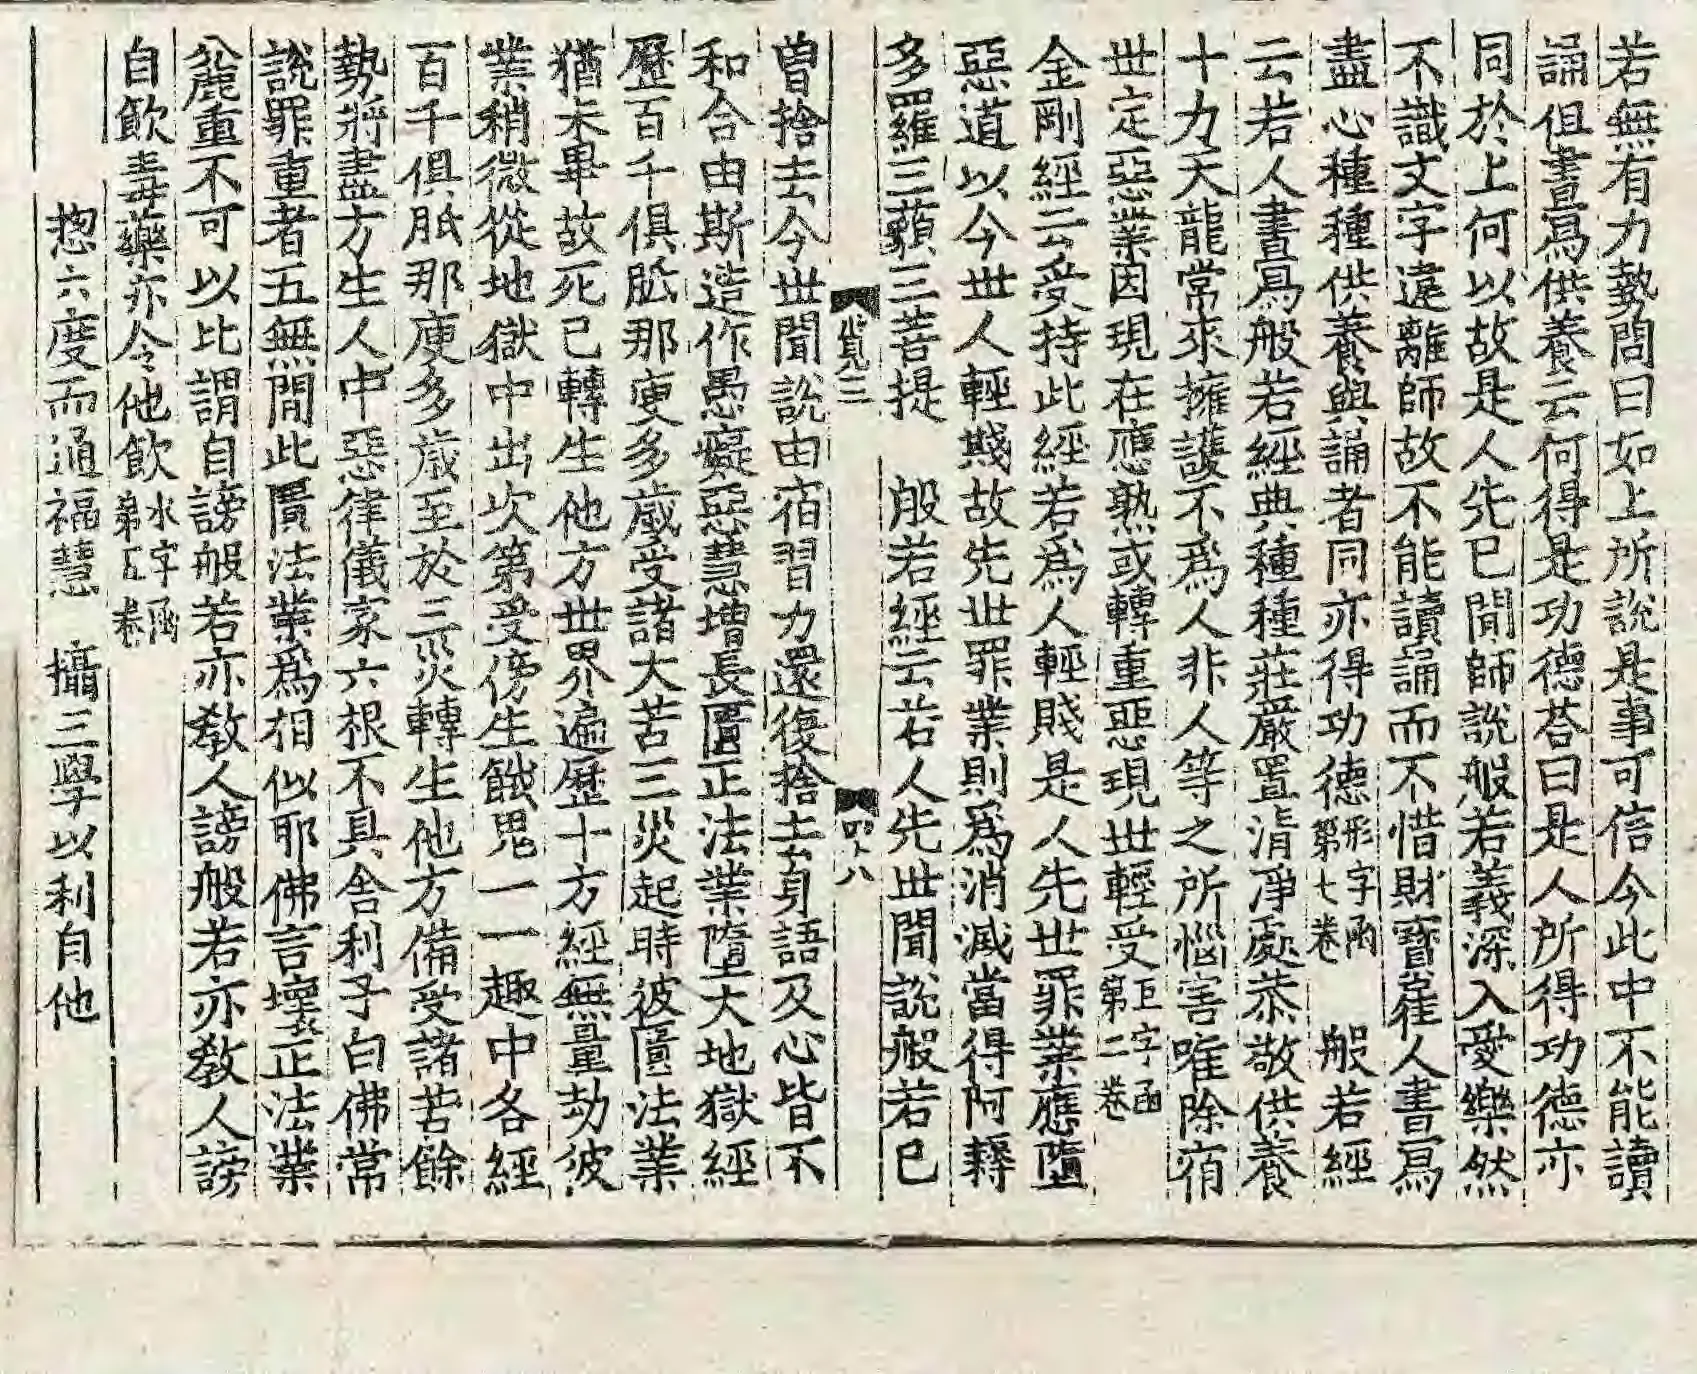 若無有力勢問曰如上所說是事可信今此中不能讀
誦但書寫供養云何得是功德荅曰是人所得功德亦
同於上何以故是人先已聞師說般若義深入愛樂然
不識文字違離師故不能讀誦而不惜財寶雇人書寫
盡心種種供養與誦者同亦得功德形字函第七卷　般若經
云若人書寫般若經典種種莊嚴置清淨處恭敬供養
十力天龍常來擁護不為人非人等之所惱害唯除宿
世定惡業因現在應熟或轉重惡現世輕受巨字函第二卷
金剛經云受持此經若為人輕賤是人先世罪業應墮
惡道以今世人輕賤故先世罪業則為消滅當得阿耨
多羅三藐三菩提　般若經云若人先世聞說般若已
覽三　四十八
曾捨去今世聞說由宿習力還復捨去身語及心皆不
和合由斯造作愚癡惡慧增長匱正法業墮大地獄經
歷百千俱胝那庾多歲受諸大苦三災起時彼匱法業
猶未畢故死已轉生他方世界遍歷十方經無量劫彼
業稍微從地獄中出次第受傍生餓鬼一一趣中各經
百千俱胝那庾多歲至於三災轉生他方備受諸苦餘
勢將盡方生人中惡律儀家六根不具舍利子白佛常
說罪重者五無間此匱法業為相似耶佛言壞正法業
麁重不可以比謂自謗般若亦教人謗般若亦教人謗
自飲毒藥亦令他飲水字函第五卷
揔六度而通福慧　攝三學以利自他